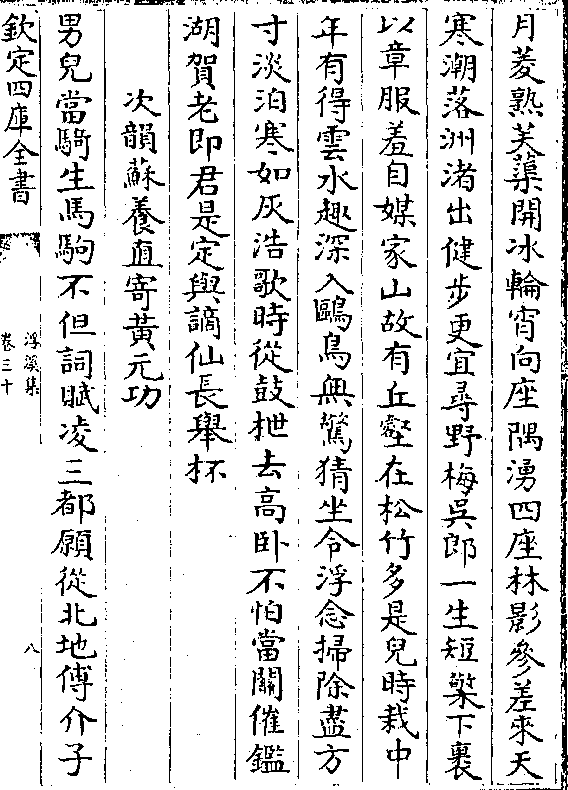 月菱熟芙蕖開冰輪宵向座隅湧四座林影參差來天
寒潮落洲渚出健步更宜尋野梅吳郎一生短檠下裹
以章服羞自媒家山故有丘壑在松竹多是兒時栽中
年有得雲水趣深入鷗鳥無驚猜坐令浮念掃除盡方
寸淡泊寒如灰浩歌時從鼓枻去高卧不怕當關催鑑
湖賀老即君是定與謫仙長舉杯
次韻蘇養直寄黃元功
男兒當騎生馬駒不但詞賦凌三都願從北地傅介子
欽定四庫全書
浮溪集
卷三十
八